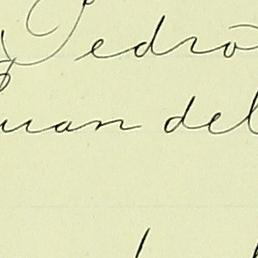 Pedro
Juan del